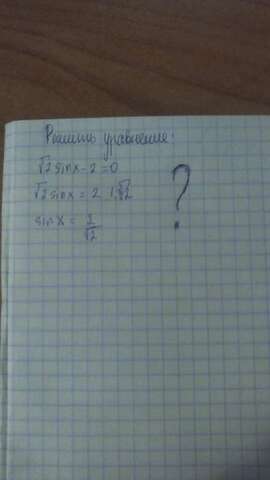 Решить уравнение:
√2 sin x - 2 = 0
√2 sin x = 2 | :√2
sin x = 2/√2
?